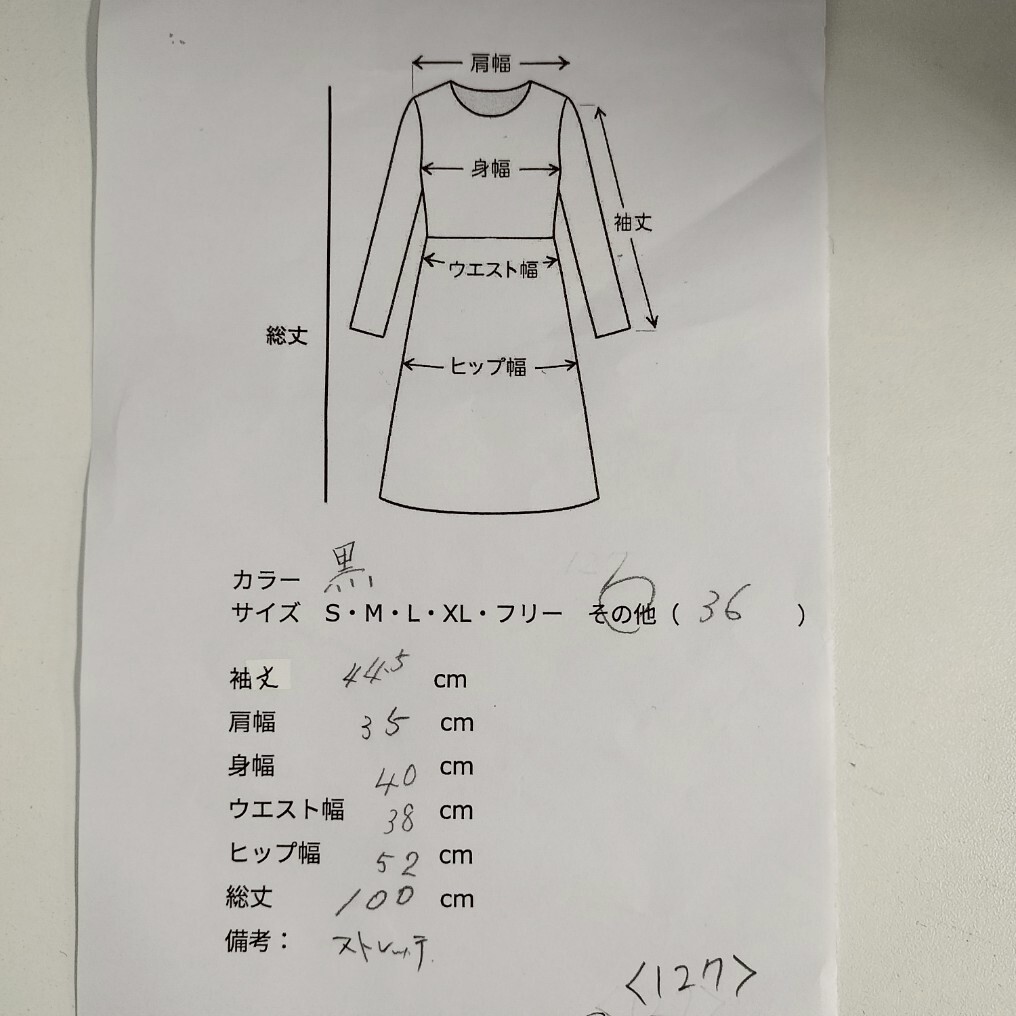 肩幅
身幅
袖丈
ウエスト幅
総丈
ヒップ幅
カラー 黒
サイズ S・M・L・XL・フリー その他（ 36 ）
袖丈 44.5 cm
肩幅 35 cm
身幅 40 cm
ウエスト幅 38 cm
ヒップ幅 52 cm
総丈 100 cm
備考： ストレッチ
<127>